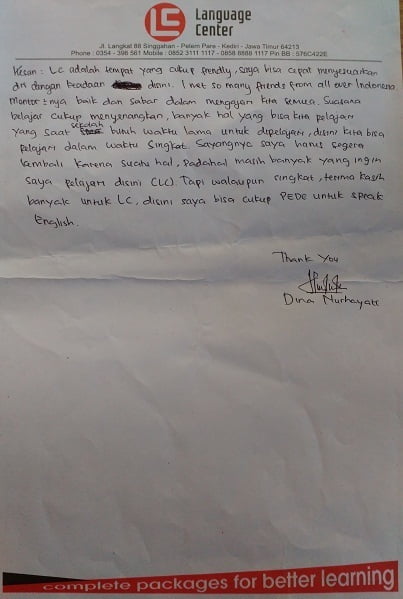 Language
Center
Jl. Langkat 88 Singgahan - Pelem Pare - Kediri - Jawa Timur 64213
Phone : 0354 - 396 561 Mobile : 0852 3111 1117 - 0858 8888 1117 Pin BB : 576C422E
Kesan : LC adalah tempat yang cukup frendly, saya bisa cepat menyesuaikan
diri dengan keadaan disini. I net so many friends from all over Indonesia
Mentor²nya baik dan sabar dalam mengajari kita semua. Suasana
belajar cukup menyenangkan, banyak hal yang bisa kita pelajari
yang saat sekolah butuh waktu lama untuk dipelajari, disini kita bisa
pelajari dalam waktu singkat. Sayangnya saya harus segera
kembali karena suatu hal, padahal masih banyak yang ingin
saya pelajari disini (LC). Tapi walaupun singkat, terima kasih
banyak untuk LC, disini saya bisa cukup PEDE untuk speak
English.
Thank You
Dina Nurhayati
complete packages for better learning